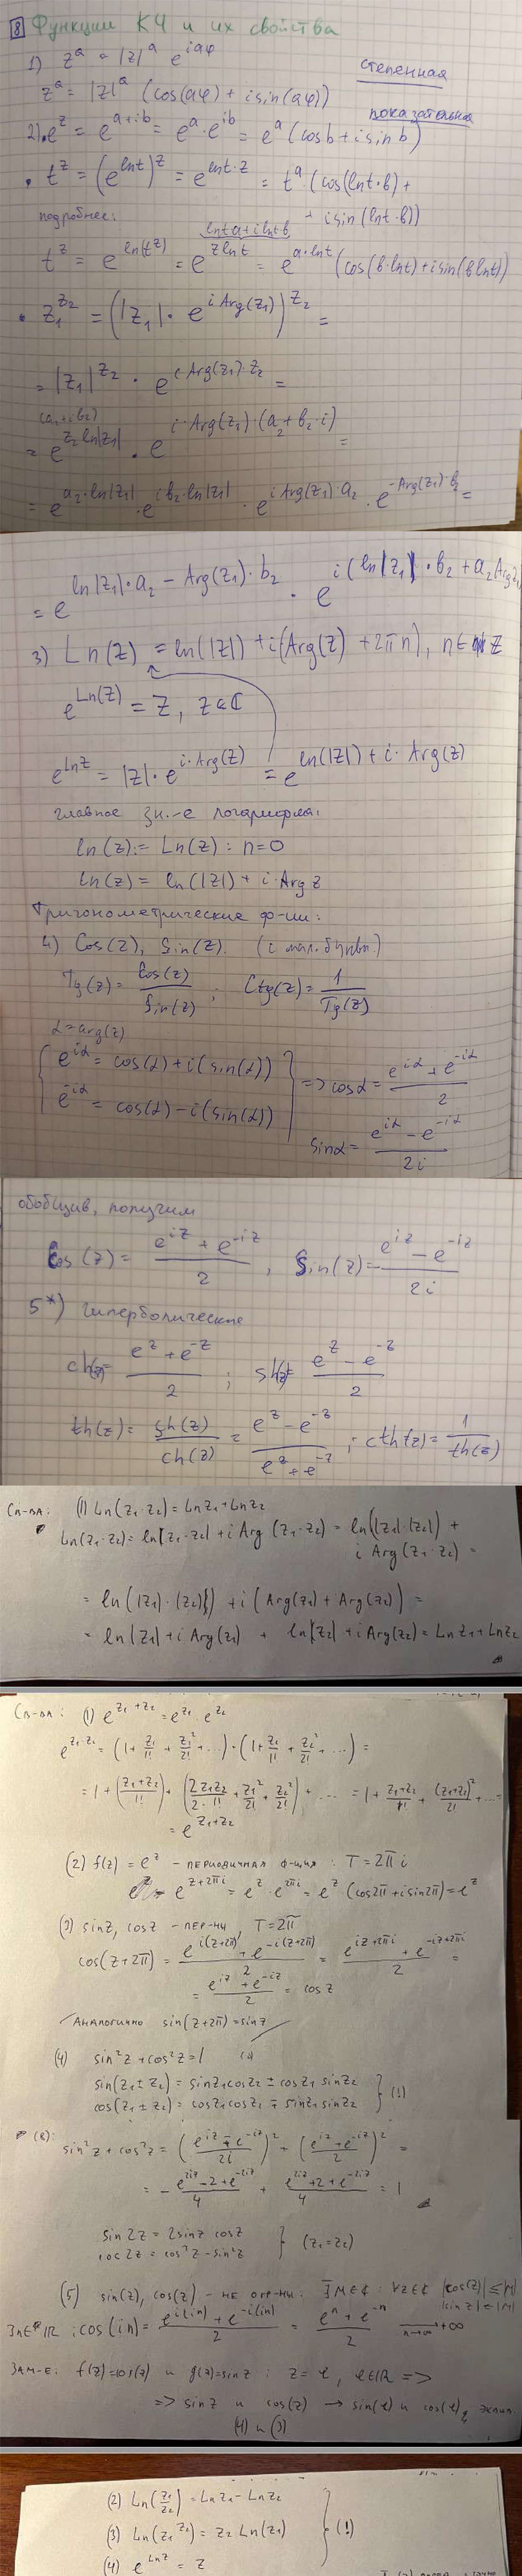 8 Функции КЧ и их свойства
1) z^a = |z|^a e^{iaφ}
степенная
z^a = |z|^a (cos(aφ) + i sin(aφ))
показательная
2) • e^z = e^{a+ib} = e^a · e^{ib} = e^a (cos b + i sin b)
• t^z = (e^{ln t})^z = e^{ln t · z} = t^a · (cos(ln t · b) +
+ i sin(ln t · b))
подробнее:
ln t a + i ln t · b
t^z = e^{ln(t^z)} = e^{z ln t} = e^{a · ln t} (cos(b · ln t) + i sin(b ln t))
• z_1^{z_2} = (|z_1| · e^{i Arg(z_1)})^{z_2} =
= |z_1|^{z_2} · e^{i Arg(z_1) · z_2} =
(a_2 + i b_2)
= e^{z_2 ln|z_1|} · e^{i · Arg(z_1) · (a_2 + b_2 · i)} =
= e^{a_2 · ln|z_1|} · e^{i b_2 · ln|z_1|} · e^{i Arg(z_1) · a_2} · e^{-Arg(z_1) · b_2} =
= e^{ln|z_1| · a_2 - Arg(z_1) · b_2} · e^{i(ln|z_1| · b_2 + a_2 Arg z_1)}
3) Ln(z) = ln(|z|) + i(Arg(z) + 2πn), n ∈ Z
e^{Ln(z)} = z, z ∈ ℂ
e^{ln z} = |z| · e^{i · Arg(z)} = e^{ln(|z|) + i · Arg(z)}
главное зн.-е логарифма:
ln(z) := Ln(z) : n=0
ln(z) = ln(|z|) + i · Arg z
Тригонометрические ф-ии:
4) Cos(z), Sin(z). (с мал. букв.)
Tg(z) = Cos(z)/Sin(z) ; Ctg(z) = 1/Tg(z)
α = arg(z)
{ e^{iα} = cos(α) + i(sin(α))
e^{-iα} = cos(α) - i(sin(α)) } => cos α = (e^{iα} + e^{-iα})/2
sin α = (e^{iα} - e^{-iα})/2i
обобщив, получим
Cos(z) = (e^{iz} + e^{-iz})/2 ; Sin(z) = (e^{iz} - e^{-iz})/2i
5*) гиперболические
ch(z) = (e^z + e^{-z})/2 ; sh(z) = (e^z - e^{-z})/2
th(z) = sh(z)/ch(z) = (e^z - e^{-z})/(e^z + e^{-z}) ; cth(z) = 1/th(z)
Св-ва: (1) Ln(z_1 · z_2) = Ln z_1 + Ln z_2
Ln(z_1 · z_2) = ln|z_1 · z_2| + i Arg(z_1 · z_2) = ln(|z_1| · |z_2|) +
i Arg(z_1 · z_2) =
= ln(|z_1| · |z_2|) + i(Arg(z_1) + Arg(z_2)) =
= ln|z_1| + i Arg(z_1) + ln|z_2| + i Arg(z_2) = Ln z_1 + Ln z_2
Св-ва: (1) e^{z_1+z_2} = e^{z_1} · e^{z_2}
e^{z_1 · z_2} = (1 + z_1/1! + z_1^2/2! + ...) · (1 + z_2/1! + z_2^2/2! + ...) =
= 1 + ((z_1+z_2)/1!) + (2 z_1 z_2/(2 · 1!) + z_1^2/2! + z_2^2/2!) + ... = 1 + (z_1+z_2)/1! + (z_1+z_2)^2/2! + ... =
= e^{z_1+z_2}
(2) f(z) = e^z - периодичная ф-ция : T = 2πi
e^{z+2πi} = e^z · e^{2πi} = e^z (cos2π + i sin2π) = e^z
(3) sin z, cos z - пер-ны, T = 2π
cos(z+2π) = (e^{i(z+2π)} + e^{-i(z+2π)})/2 = (e^{iz+2πi} + e^{-iz+2πi})/2 =
= (e^{iz} + e^{-iz})/2 = cos z
Аналогично sin(z+2π) = sin z
(4) sin²z + cos²z = 1
sin(z_1 ± z_2) = sin z_1 cos z_2 ± cos z_1 sin z_2
cos(z_1 ± z_2) = cos z_1 cos z_2 ∓ sin z_1 sin z_2 } (!)
sin²z + cos²z = ((e^{iz} - e^{-iz})/2i)² + ((e^{iz} + e^{-iz})/2)² =
= -(e^{2iz} - 2 + e^{-2iz})/4 + (e^{2iz} + 2 + e^{-2iz})/4 = 1
sin 2z = 2 sin z cos z
cos 2z = cos²z - sin²z } (z_1 = z_2)
(5) sin(z), cos(z) - не огр-ны. ∃M∈ℂ : ∀z∈ℂ |cos(z)| ≤ |M|
|sin z| ≤ |M|
∃n∈ℝ : cos(in) = (e^{i(in)} + e^{-i(in)})/2 = (e^n + e^{-n})/2 → +∞
n→∞
Зам-е: f(z) = cos(z) и g(z) = sin z : z = t, t∈ℝ =>
=> sin z и cos(z) → sin(t) и cos(t),
(4) и (3)
(2) Ln(z_1/z_2) = Ln z_1 - Ln z_2
(3) Ln(z_1^{z_2}) = z_2 Ln(z_1) } (!)
(4) e^{Ln z} = z